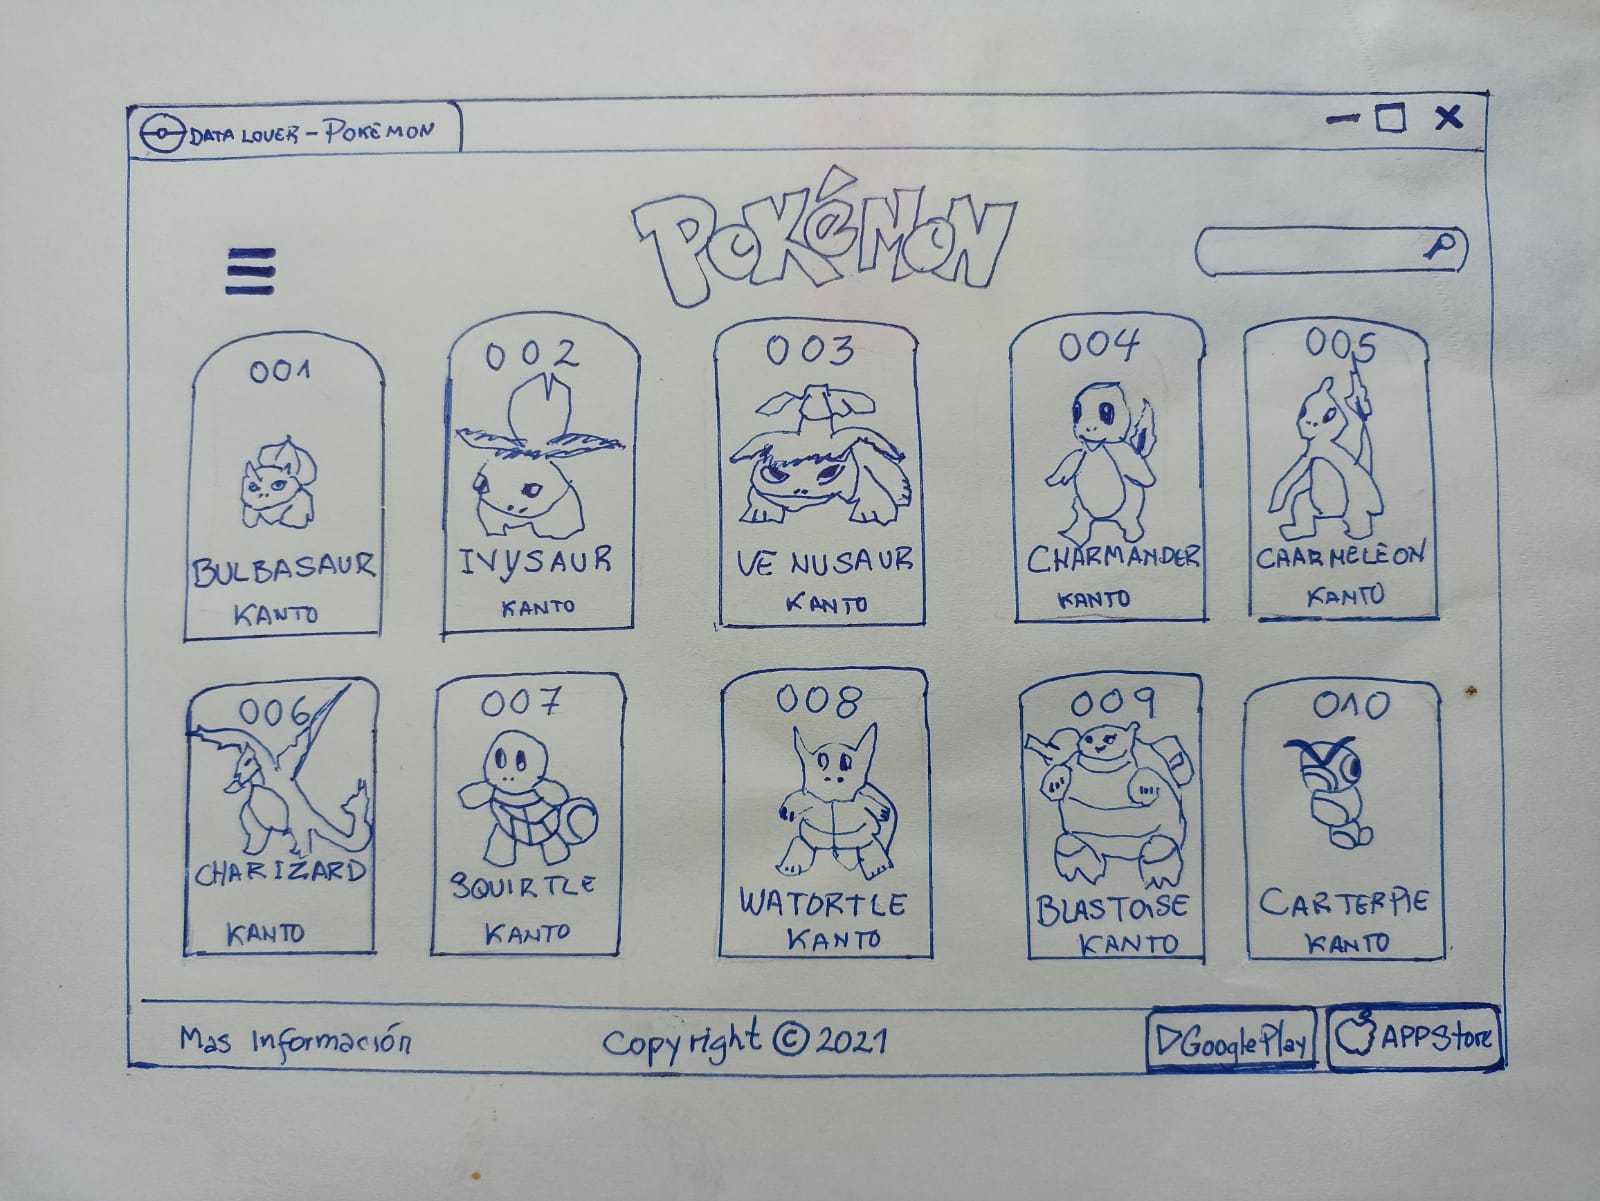 DATA LOVER - POKÉMON
POKÉMON
001
BULBASAUR
KANTO
002
IVYSAUR
KANTO
003
VENUSAUR
KANTO
004
CHARMANDER
KANTO
005
CAARMELEON
KANTO
006
CHARIZARD
KANTO
007
SQUIRTLE
KANTO
008
WATORTLE
KANTO
009
BLASTOISE
KANTO
010
CARTERPIE
KANTO
Mas Información
Copyright © 2021
Google Play
APPStore